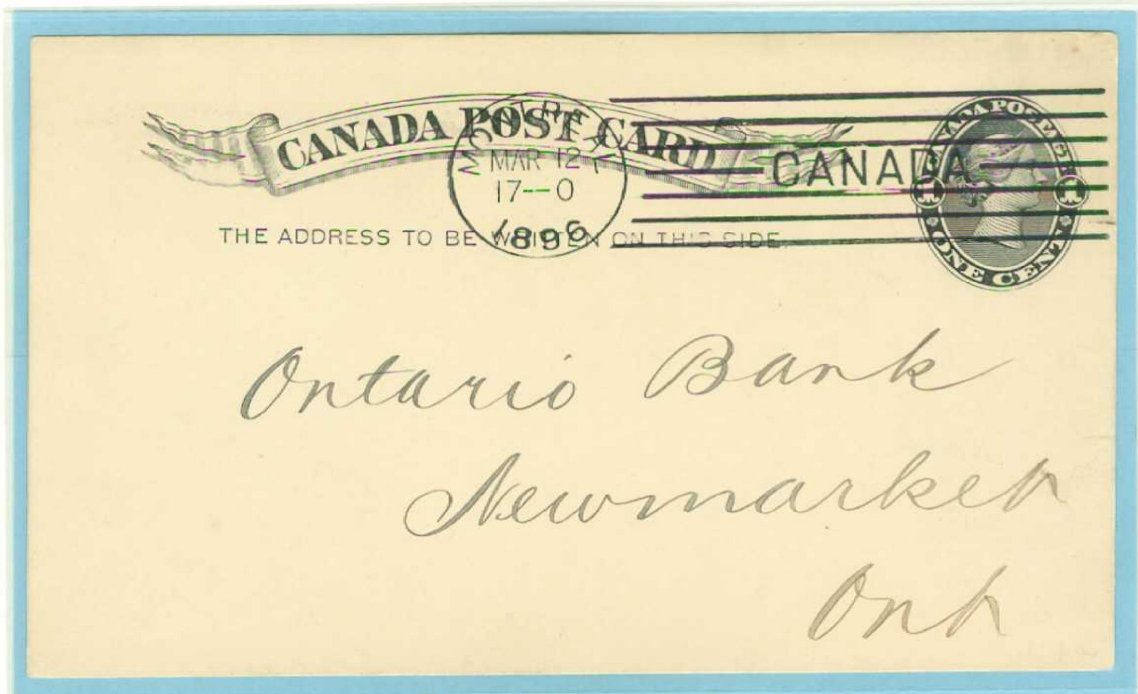 CANADA POST CARD
MONTREAL
MAR 12
17--0
1896
CANADA
CANADA POSTAGE
1 1
ONE CENT
THE ADDRESS TO BE WRITTEN ON THIS SIDE.
Ontario Bank
Newmarket
Ont